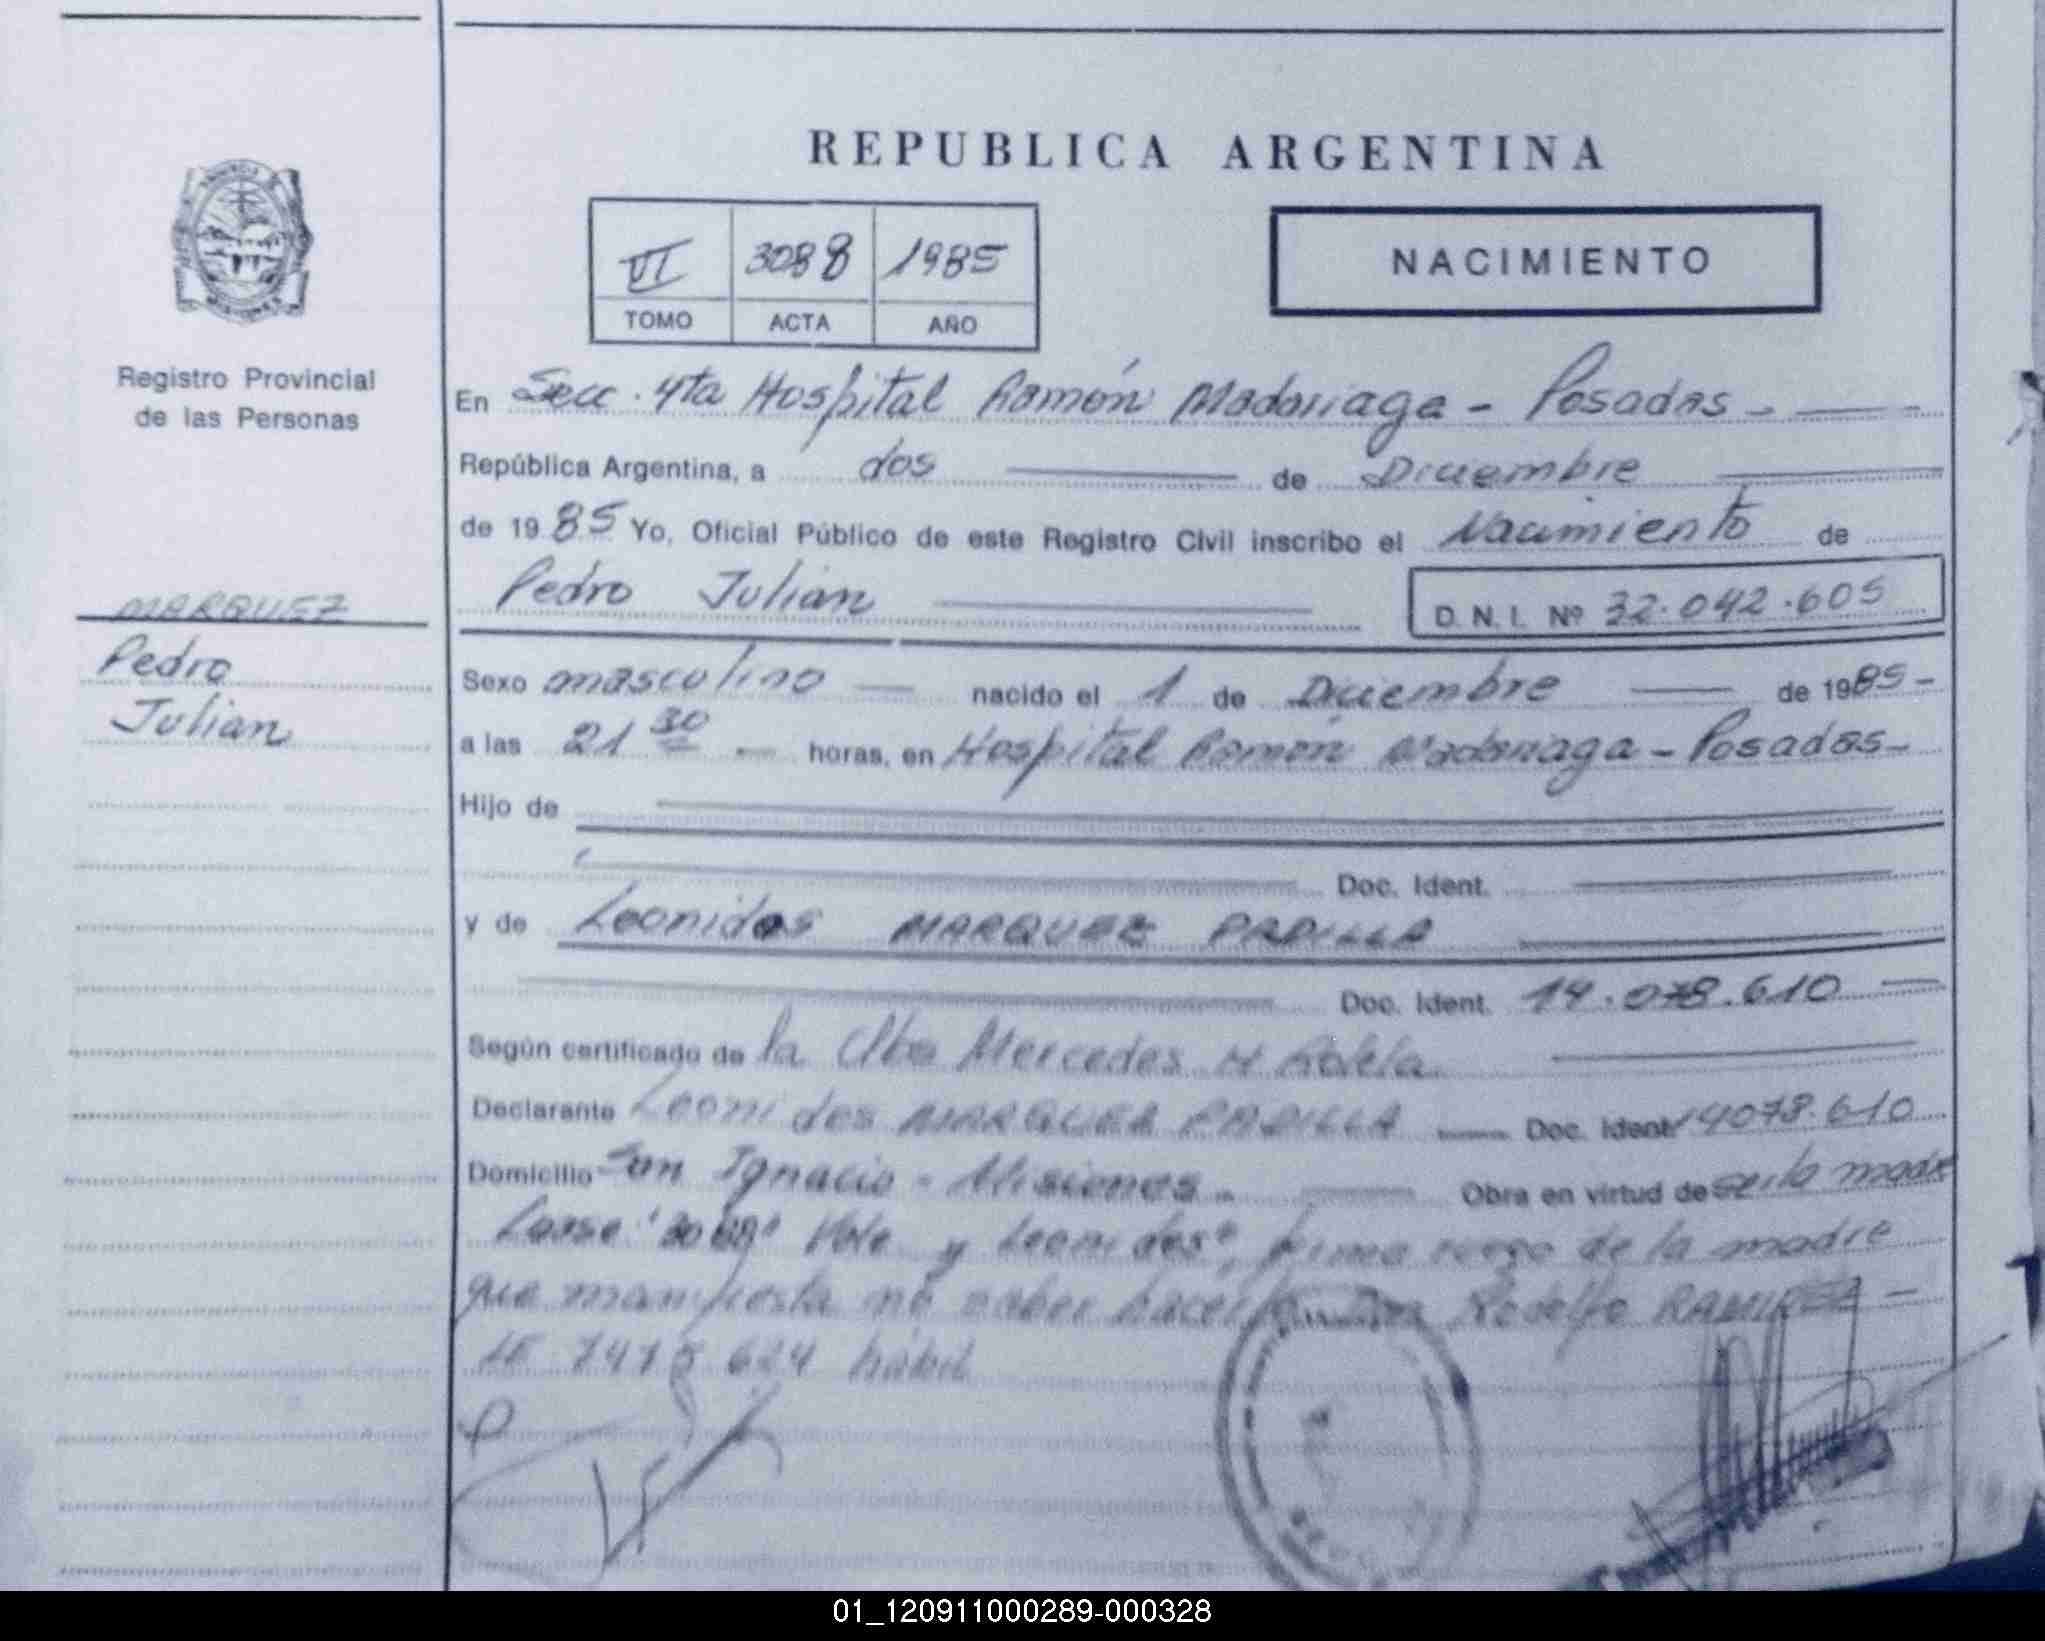 REPUBLICA ARGENTINA
VI 3088 1985
TOMO ACTA AÑO
NACIMIENTO
Registro Provincial
de las Personas
MARQUEZ
Pedro
Julian
En Secc. 4ta Hospital Ramón Madariaga - Posadas -
República Argentina, a dos de Diciembre
de 1985 Yo, Oficial Público de este Registro Civil inscribo el Nacimiento de
Pedro Julian D. N. I. Nº 32.042.605
Sexo masculino nacido el 1 de Diciembre de 1985 -
a las 21 30 horas, en Hospital Ramón Madariaga - Posadas -
Hijo de
Doc. Ident.
y de Leonidas MARQUEZ PADILLA
Doc. Ident. 14.078.610
Según certificado de la Mercedes
Declarante Leonidas MARQUEZ PADILLA Doc. Ident. 14078.610
Domicilio San Ignacio - Misiones - Obra en virtud de ser la madre
"3088" Vale y Leonidas", firma ruego de la madre
que manifiesta no saber hacerlo Don Rodolfo RAMIREZ -
624 hábil
01_120911000289-000328